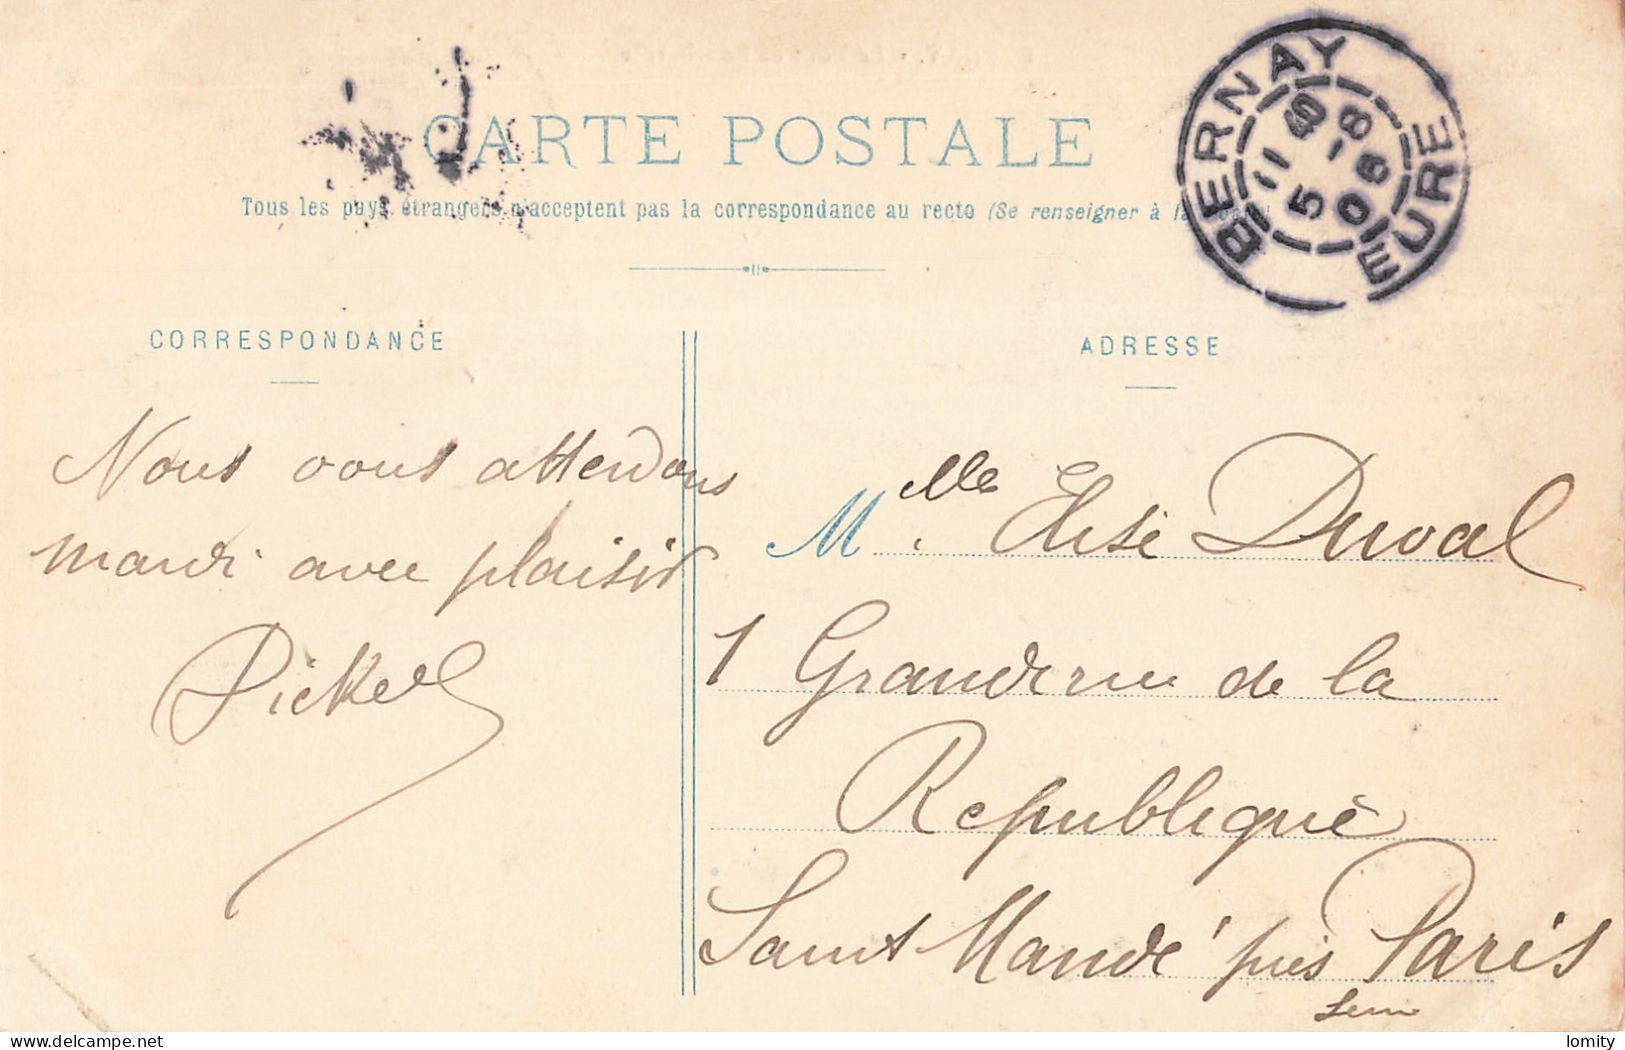 CARTE POSTALE
Tous les pays étrangers n'acceptent pas la correspondance au recto (Se renseigner à la
BERNAY
EURE
5 -8
06
CORRESPONDANCE
ADRESSE
Nous vous attendons
mardi avec plaisir
Mlle Elise Duval
1 Grande rue de la
République
Saint Mandé près Paris
Seine
lomity